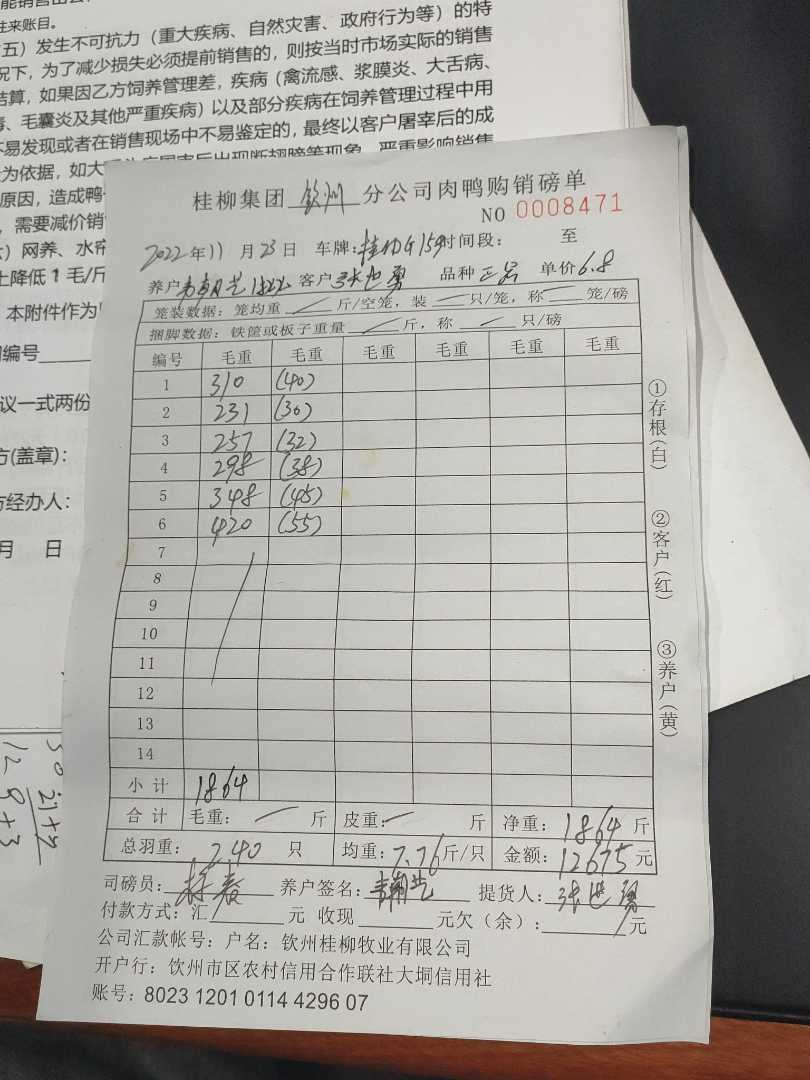 五）发生不可抗力（重大疾病、自然灾害、政府行为等）的特
况下，为了减少损失必须提前销售的，则按当时市场实际的销售
结算，如果因乙方饲养管理差，疾病（禽流感、浆膜炎、大舌病、
毛囊炎及其他严重疾病）以及部分疾病在饲养管理过程中用
不易发现或者在销售现场中不易鉴定的，最终以客户屠宰后的成
为依据，
严重影响销售
原因，造成鸭
需要减价销
网养、水帘
降低1毛/斤
本附件作为
编号
议一式两份
(盖章)：
经办人：
月 日
桂柳集团 钦州 分公司肉鸭购销磅单
NO 0008471
2022年11月23日 车牌： 时间段： 至
养户 客户 品种 正品 单价 6.8
笼装数据：笼均重 斤/空笼，装 只/笼，称 笼/磅
捆脚数据：铁筐或板子重量 斤，称 只/磅
编号 毛重 毛重 毛重 毛重 毛重 毛重
1 310 (40)
2 231 (30)
3 257 (32)
4 298 (38)
5 348 (45)
6 420 (55)
7
8
9
10
11
12
13
14
小计 1864
合计 毛重： 斤 皮重： 斤 净重：1864斤
总羽重：240 只 均重：7.76斤/只 金额：12675元
司磅员： 养户签名： 提货人：
付款方式：汇 元 收现 元欠（余）： 元
公司汇款帐号：户名：钦州桂柳牧业有限公司
开户行：钦州市区农村信用合作联社大垌信用社
账号：8023 1201 0114 4296 07
①存根(白)
②客户(红)
③养户(黄)